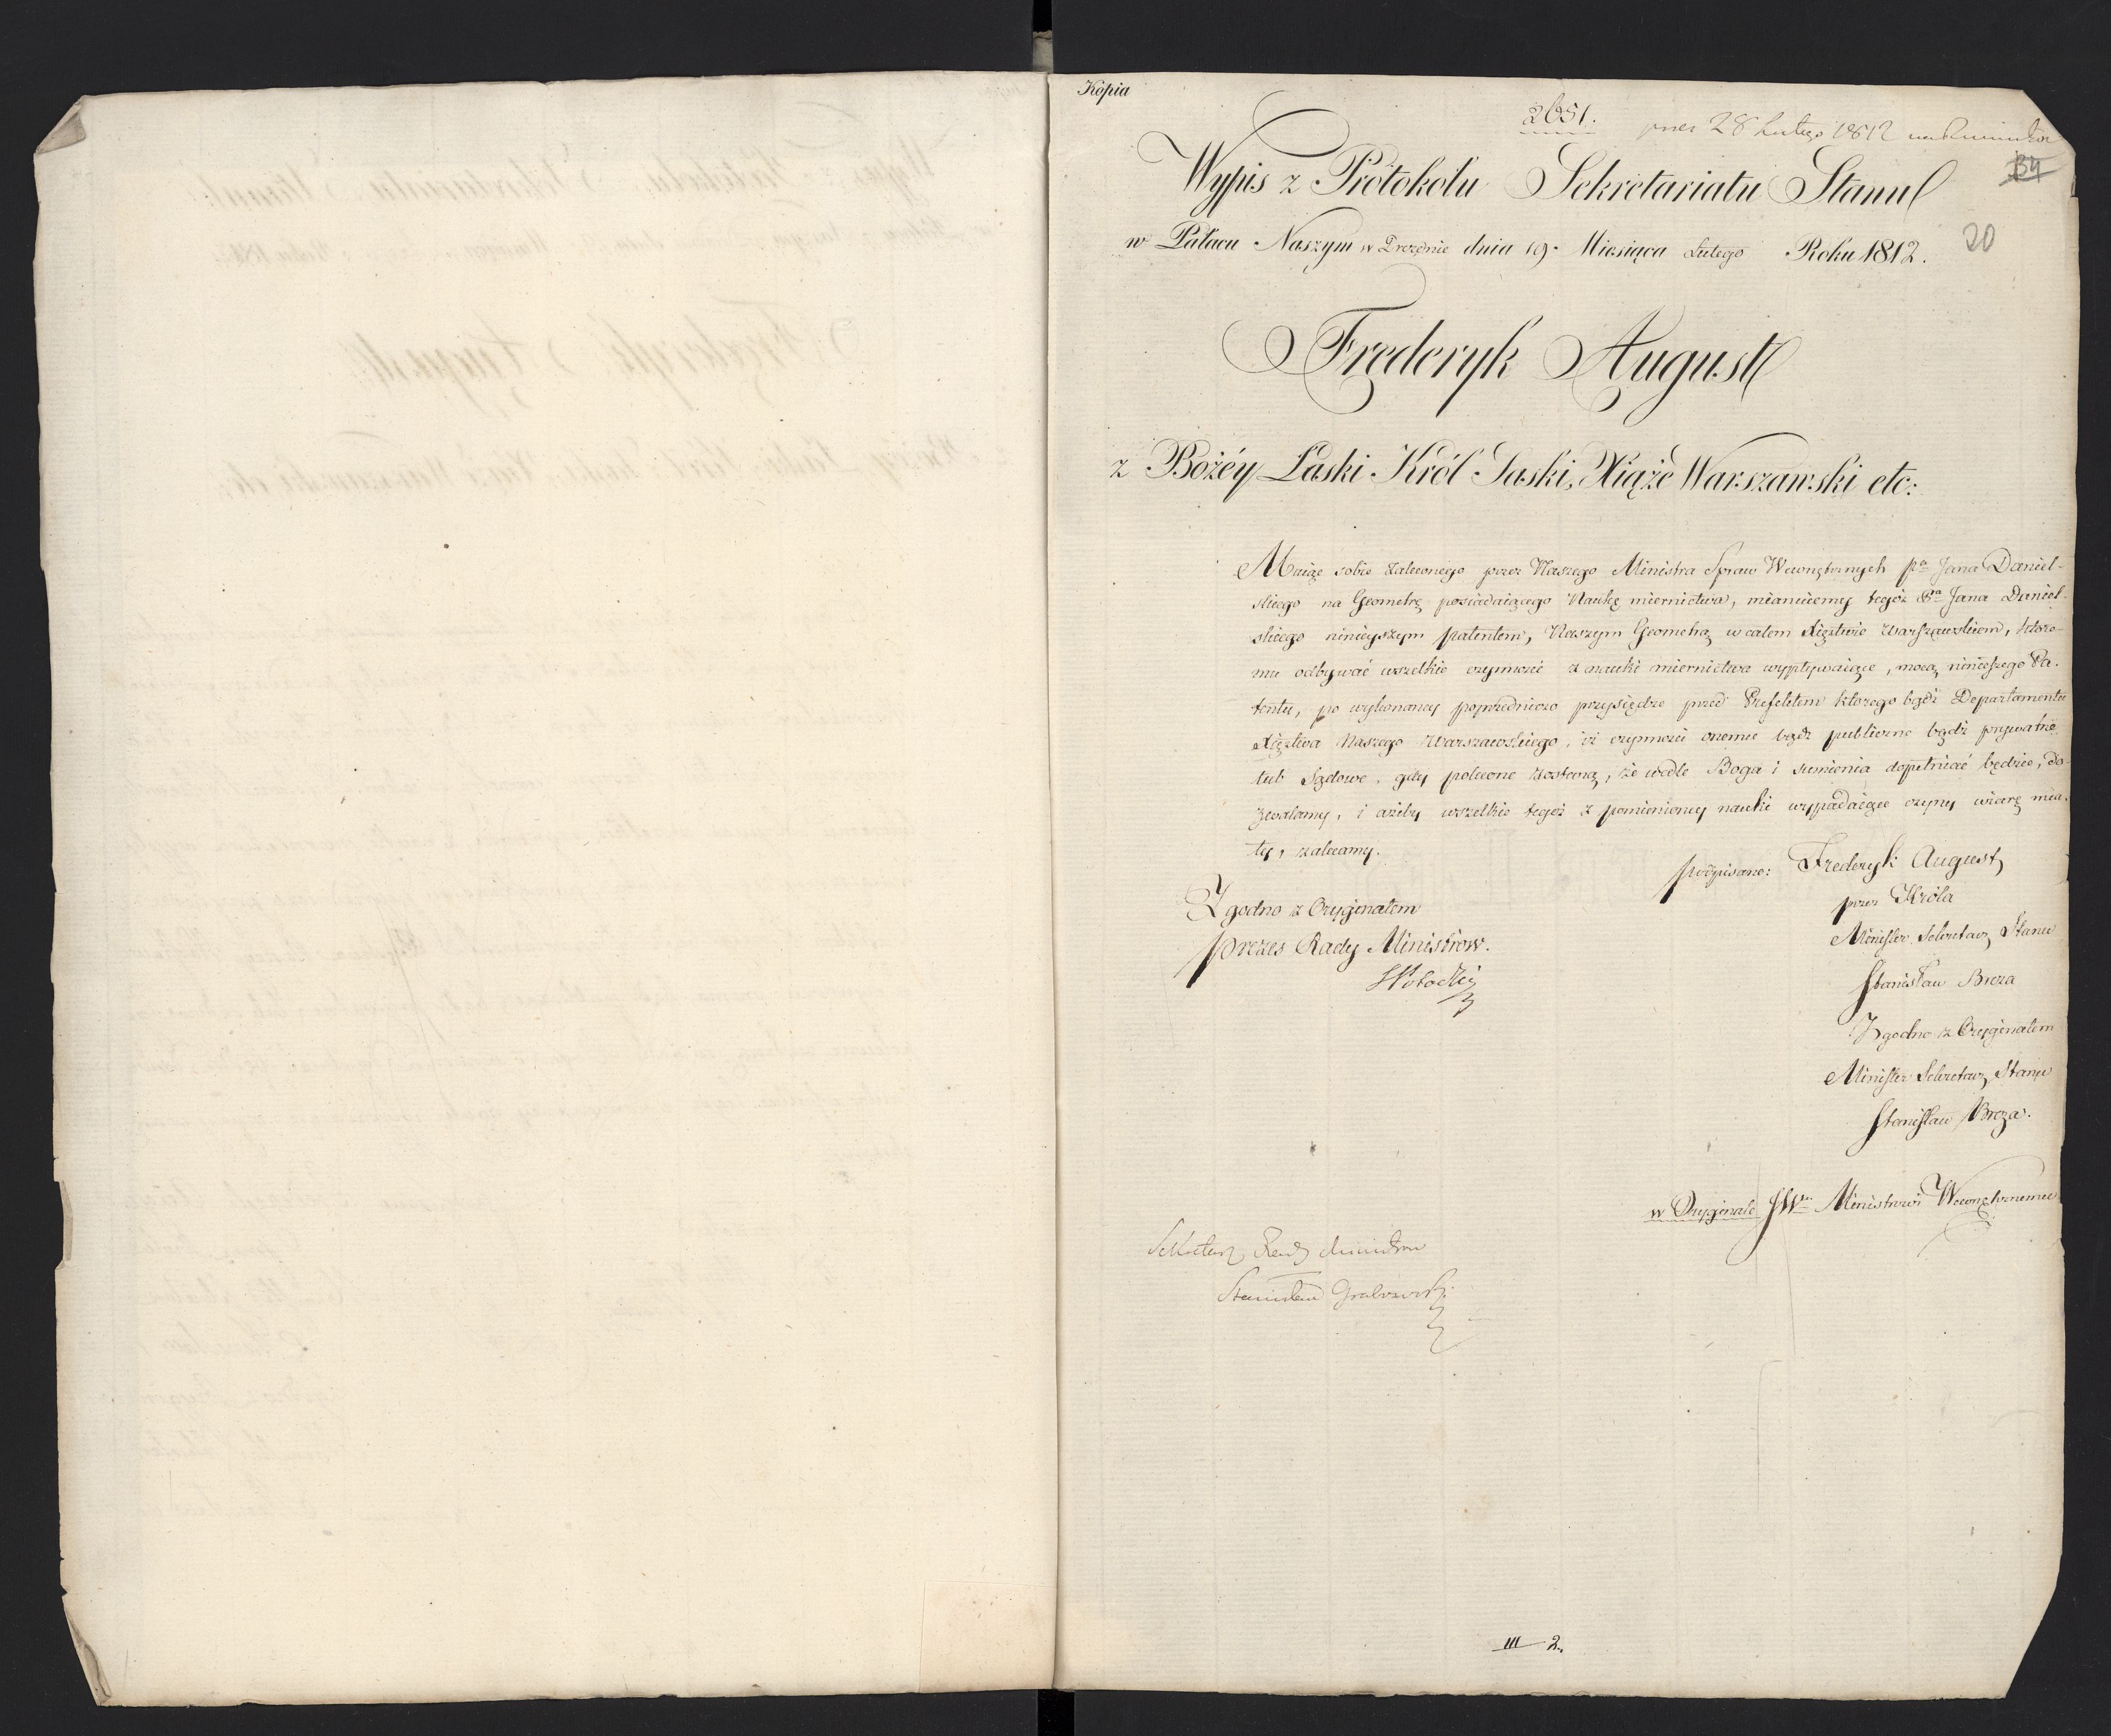 Kopia
2651.
pres 28 Lutego 1812
34
Wypis z Protokolu Sekretariatu Stanu
w Pałacu Naszym w Dreznie dnia 19. Miesiąca Lutego Roku 1812.
20
Frederyk August
z Bożéy Łaski Król Saski, Xiąże Warszawski etc:
Maiąc sobie zaleconego przez Naszego Ministra Spraw Wewnętrznych pa Jana Daniel-
skiego na Geometrę posiadaiącego Naukę miernictwa, mianuiemy tegoż Pna Jana Daniel-
skiego ninieyszym patentem, Naszym Geometrą w całem Xięstwie Warszawskiem, które-
mu odbywać wszelkie czynności z nauki miernictwa wypływaiące, mocą ninieszego Pa-
tentu, po wykonaney poprzedniczo przysiędze przed Prefektem ktorego bądź Departamentu
Xięstwa Naszego Warszawskiego, iż czynności onemu bądź publiczne bądź prywatne
lub Sądowe, gdy polecone zostaną, że wedle Boga i sumienia dopełniać będzie, do-
zwalamy, i ażeby wszelkie tegoż z pomienioney nauki wypadaiące czyny wiarę mia-
ły, zalecamy.
podpisano: Frederyk August
przez Króla
Minister Sekretarz Stanu
Stanisław Breza
Zgodno z Oryginałem
Prezes Rady Ministrow.
S Potocki
Zgodno z Oryginałem
Minister Sekretarz Stanu
Stanisław Breza.
w Oryginale JWmu Ministrowi Wewnętrznemu
Sekretarz Rady Ministrow
Stanisław Grabowski
III 2.